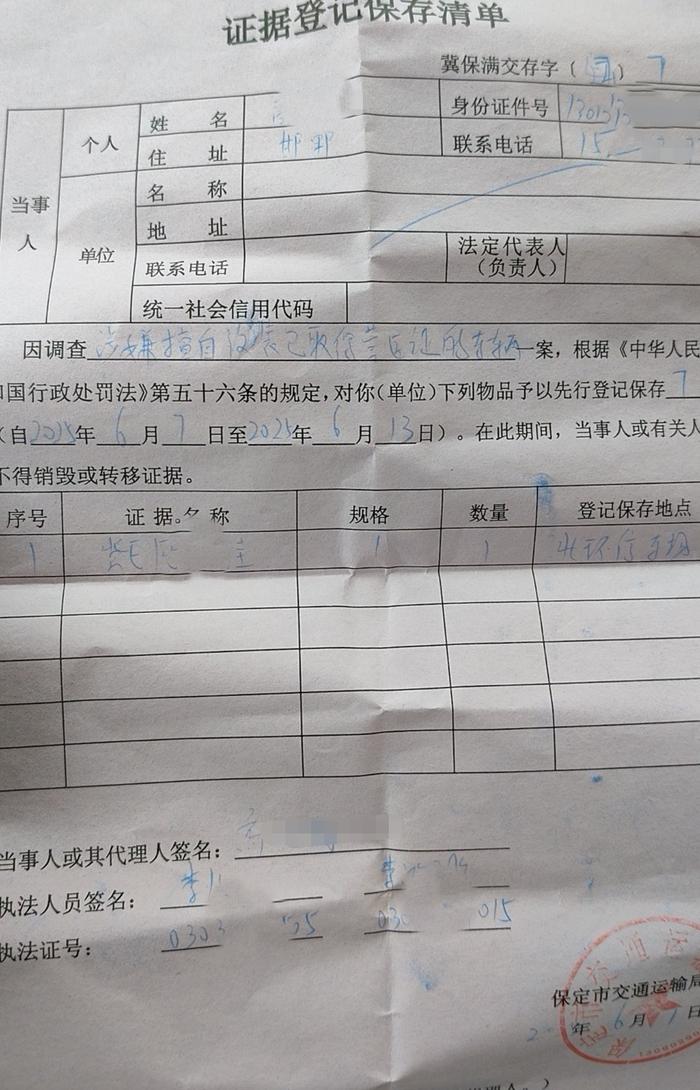 证据登记保存清单
冀保满交存字( )7
当事人 个人 姓 名 身份证件号
住 址 邯郸 联系电话 15
单位 名 称
地 址
联系电话 法定代表人(负责人)
统一社会信用代码
因调查涉嫌擅自改装已取得营运证的车辆一案,根据《中华人民
和国行政处罚法》第五十六条的规定,对你(单位)下列物品予以先行登记保存 7
(自2025年6月7日至2025年6月13日)。在此期间,当事人或有关人
不得销毁或转移证据。
序号 证据名称 规格 数量 登记保存地点
1 1 1 北环停车场
当事人或其代理人签名:
执法人员签名: 李 李
执法证号: 0303 25 030 015
保定市交通运输局
年6月 日